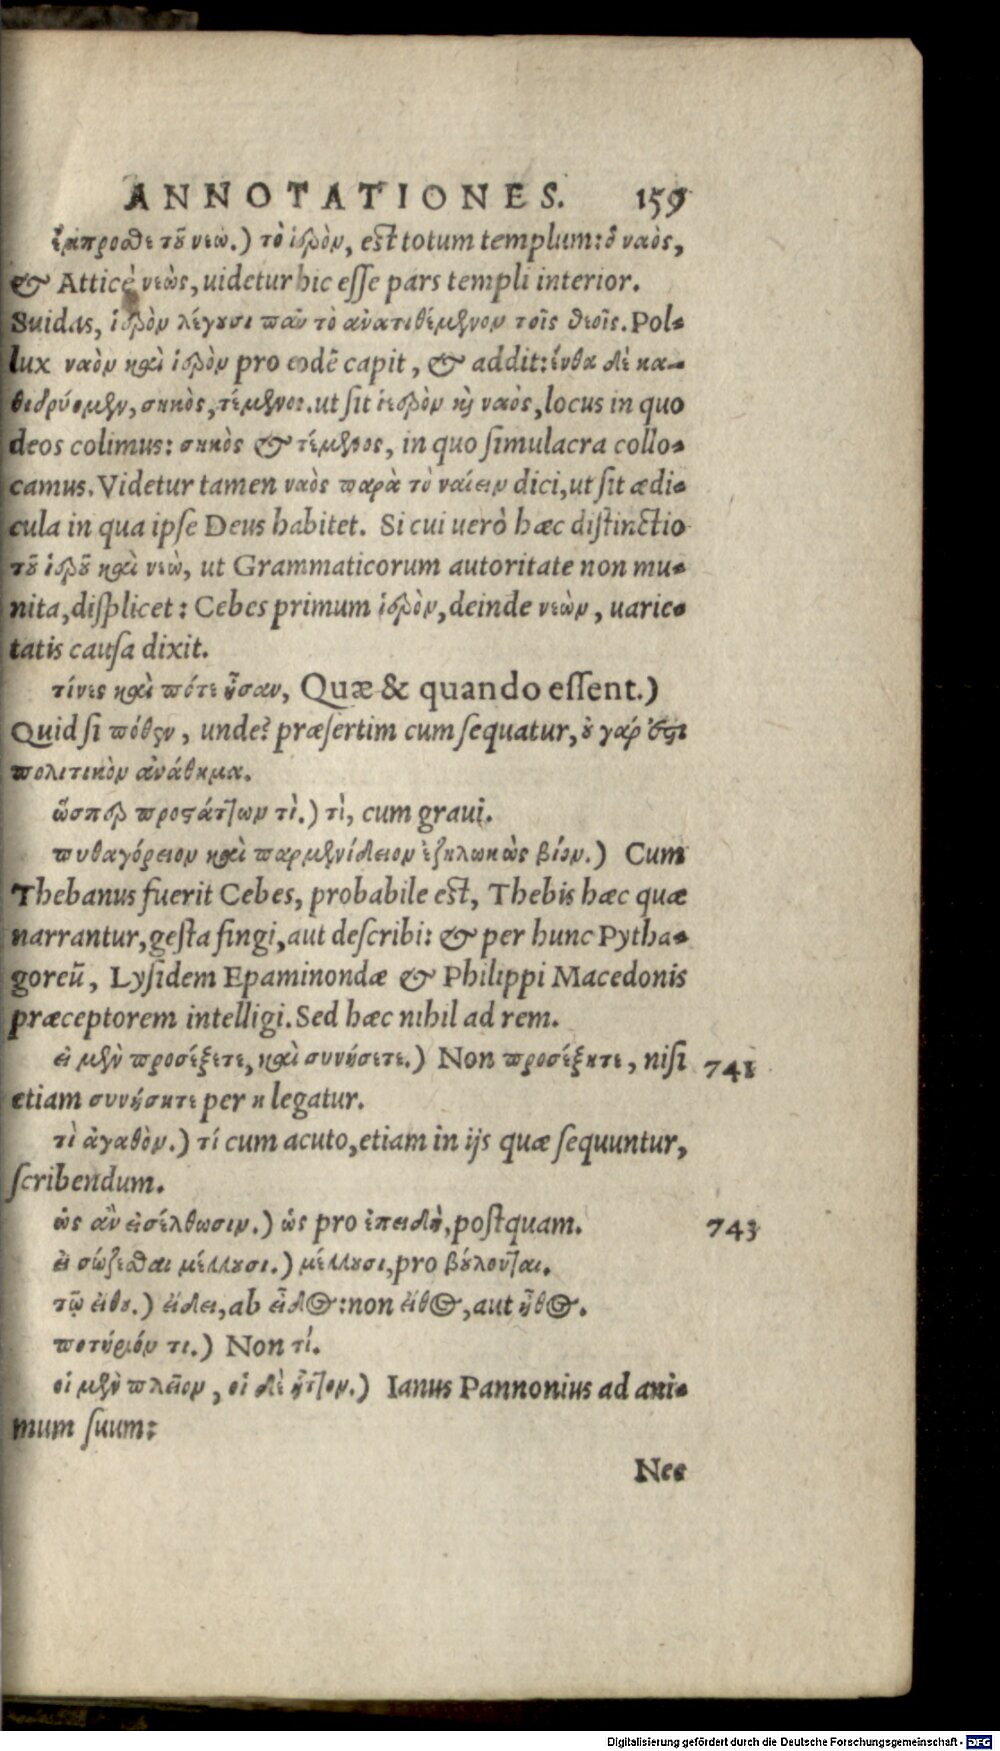 ANNOTATIONES. 159
ἔμπροσθε τοῦ νεώ.) τὸ ἱερὸν, est totum templum: ὁ ναὸς,
& Atticè νεὼς, uidetur hic esse pars templi interior.
Suidas, ἱερὸν λέγουσι παν τὸ ἀνατιθέμενον τοῖς θεοῖς. Pol-
lux ναὸν καὶ ἱερὸν pro eodē capit, & addit: ἔνθα δὲ κα-
θιδρύομεν, σηκὸς, τέμενος. ut sit ἱερὸν καὶ ναὸς, locus in quo
deos colimus: σηκὸς & τέμενος, in quo simulacra collo-
camus. Videtur tamen ναὸς παρὰ τὸ ναίειν dici, ut sit ædi-
cula in qua ipse Deus habitet. Si cui uerò hæc distinctio
τοῦ ἱεροῦ καὶ νεὼ, ut Grammaticorum autoritate non mu-
nita, displicet: Cebes primum ἱερὸν, deinde νεὼν, uarie-
tatis causa dixit.
τίνες καὶ πότε ἦσαν, Quæ & quando essent.)
Quid si πόθεν, unde? præsertim cum sequatur, οὐ γάρ ἐστι
πολιτικὸν ἀνάθημα.
ὥσπερ προστάττων τὶ.) τὶ, cum graui.
πυθαγόρειον καὶ παρμενίδειον ἐζηλωκὼς βίον.) Cum
Thebanus fuerit Cebes, probabile est, Thebis hæc quæ
narrantur, gesta fingi, aut describi: & per hunc Pytha-
goreū, Lysidem Epaminondæ & Philippi Macedonis
præceptorem intelligi. Sed hæc nihil ad rem.
εἰ μὲν προσέξετε, καὶ συνήσετε.) Non προσέξητε, nisi 741
etiam συνήσητε per η legatur.
τὶ ἀγαθὸν.) τί cum acuto, etiam in ijs quæ sequuntur,
scribendum.
ὡς ἂν εἰσέλθωσιν.) ὡς pro ἐπειδὴ, postquam. 743
εἰ σώζεσθαι μέλλουσι.) μέλλουσι, pro βούλονται.
τῷ εἴθει.) εἴδει, ab εἶδος: non εἴθος, aut ἦθος.
ποτήριόν τι.) Non τί.
οἱ μὲν πλεῖον, οἱ δὲ ἧττον.) Ianus Pannonius ad ani-
mum suum:
Nec